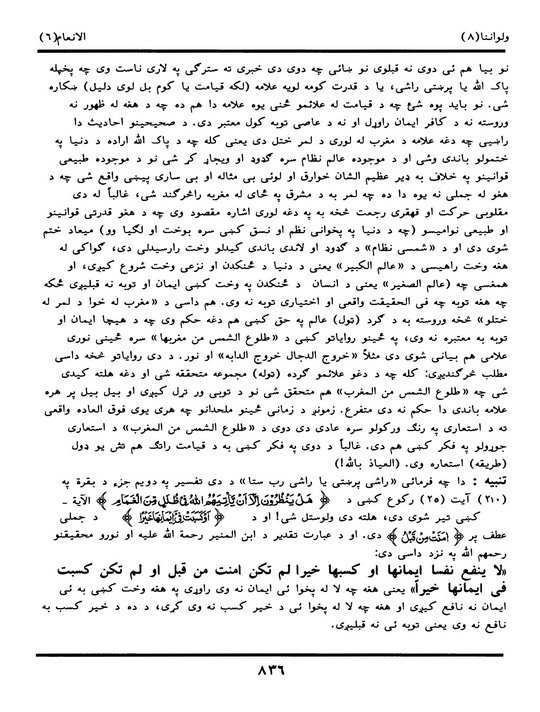 ولواننا(۸)
الانعام(٦)
نو بیا هم ئی دوی نه قبلوی نو ښائی چه دوی دی خبری ته سترگی په لاری ناست وی چه پخپله
پاک الله یا پرښتی راشی، یا د قدرت کومه لویه علامه (لکه قیامت یا کوم بل لوی دلیل) ښکاره
شی. نو باید پوه شئ چه د قیامت له علائمو څنی یوه علامه دا هم ده چه د هغه له ظهور نه
وروسته نه د کافر ایمان راوړل او نه د عاصی توبه کول معتبر دی. د صحیحینو احادیث دا
راښیی چه دغه علامه د مغرب له لوری د لمر ختل دی یعنی کله چه د پاک الله اراده د دنیا په
ختمولو باندی وشی او د موجوده عالم نظام سره گډوډ او ویجاړ کړ شی نو د موجوده طبیعی
قوانینو په خلاف به ډیر عظیم الشان خوارق او لوئی بی مثاله او بی ساری پیښی واقع شی چه د
هغو له جملی نه یوه دا ده چه لمر به د مشرق په ځای له مغربه راڅرگند شی، غالباً له دی
مقلوبی حرکت او قهقری رجعت څخه به په دغه لوری اشاره مقصود وی چه د هغو قدرتی قوانینو
او طبیعی نوامیسو (چه د دنیا په پخوانی نظم او نسق کښی سره بوخت او لگیا وو) میعاد ختم
شوی دی او د «شمسی نظام» د گډوډ او لاندی باندی کیدلو وخت رارسیدلی دی، گواکی له
هغه وخت راهیسی د «عالم الکبیر» یعنی د دنیا د ځنکدن او نزعی وخت شروع کیږی، او
همغسی چه (عالم الصغیر) یعنی د انسان د ځنکدن په وخت کښی ایمان او توبه نه قبلیږی ځکه
چه هغه توبه چه فی الحقیقت واقعی او اختیاری توبه نه وی. هم داسی د «مغرب له خوا د لمر له
ختلو» څخه وروسته به د گرد (ټول) عالم په حق کښی هم دغه حکم وی چه د هیچا ایمان او
توبه به معتبره نه وی، په ځینو روایاتو کښی د «طلوع الشمس من مغربها» سره ځینی نوری
علامی هم بیانی شوی دی مثلاً «خروج الدجال خروج الدابه» او نور. د دی روایاتو څخه داسی
مطلب څرگندیږی: کله چه د دغو علائمو گرده (ټوله) مجموعه متحققه شی او دغه هلته کیدی
شی چه «طلوع الشمس من المغرب» هم متحقق شی نو د توبی ور تړل کیږی او بیل بیل پر هره
علامه باندی دا حکم نه دی متفرع. زمونږ د زمانی ځینو ملحدانو چه هری یوی فوق العاده واقعی
ته د استعاری په رنگ ورکولو سره عادی دی دوی د «طلوع الشمس من المغرب» د استعاری
جوړولو په فکر کښی هم دی. غالباً د دوی په فکر کښی به د قیامت راتگ هم تش یو ډول
(طریقه) استعاره وی. (العیاذ بالله!)
تنبیه : دا چه فرمائی «راشی پرښتی یا راشی رب ستا» د دی تفسیر په دویم جزء د بقرة په
(۲۱۰) آیت (۲۵) رکوع کښی د ﴿ هَلْ يَنْظُرُوْنَ اِلَّآ اَنْ يَّاْتِيَهُمُ اللّٰهُ فِيْ ظُلَلٍ مِّنَ الْغَمَامِ ﴾ الآیة ـ
کښی تیر شوی دی، هلته دی ولوستل شی! او د ﴿ اَوْكَسَبَتْ فِيْٓ اِيْمَانِهَا خَيْرًا ﴾ د جملی
عطف پر ﴿ اٰمَنَتْ مِنْ قَبْلُ ﴾ دی. او د عبارت تقدیر د ابن المنیر رحمة الله علیه او نورو محقیقنو
رحمهم الله په نزد داسی دی:
«لا ینفع نفسا ایمانها او کسبها خیرا لم تکن امنت من قبل او لم تکن کسبت
فی ایمانها خیراً» یعنی هغه چه لا له پخوا ئی ایمان نه وی راوړی په هغه وخت کښی به ئی
ایمان نه نافع کیږی او هغه چه لا له پخوا ئی د خیر کسب نه وی کړی، د ده د خیر کسب به
نافع نه وی یعنی توبه ئی نه قبلیږی.
۸۳٦